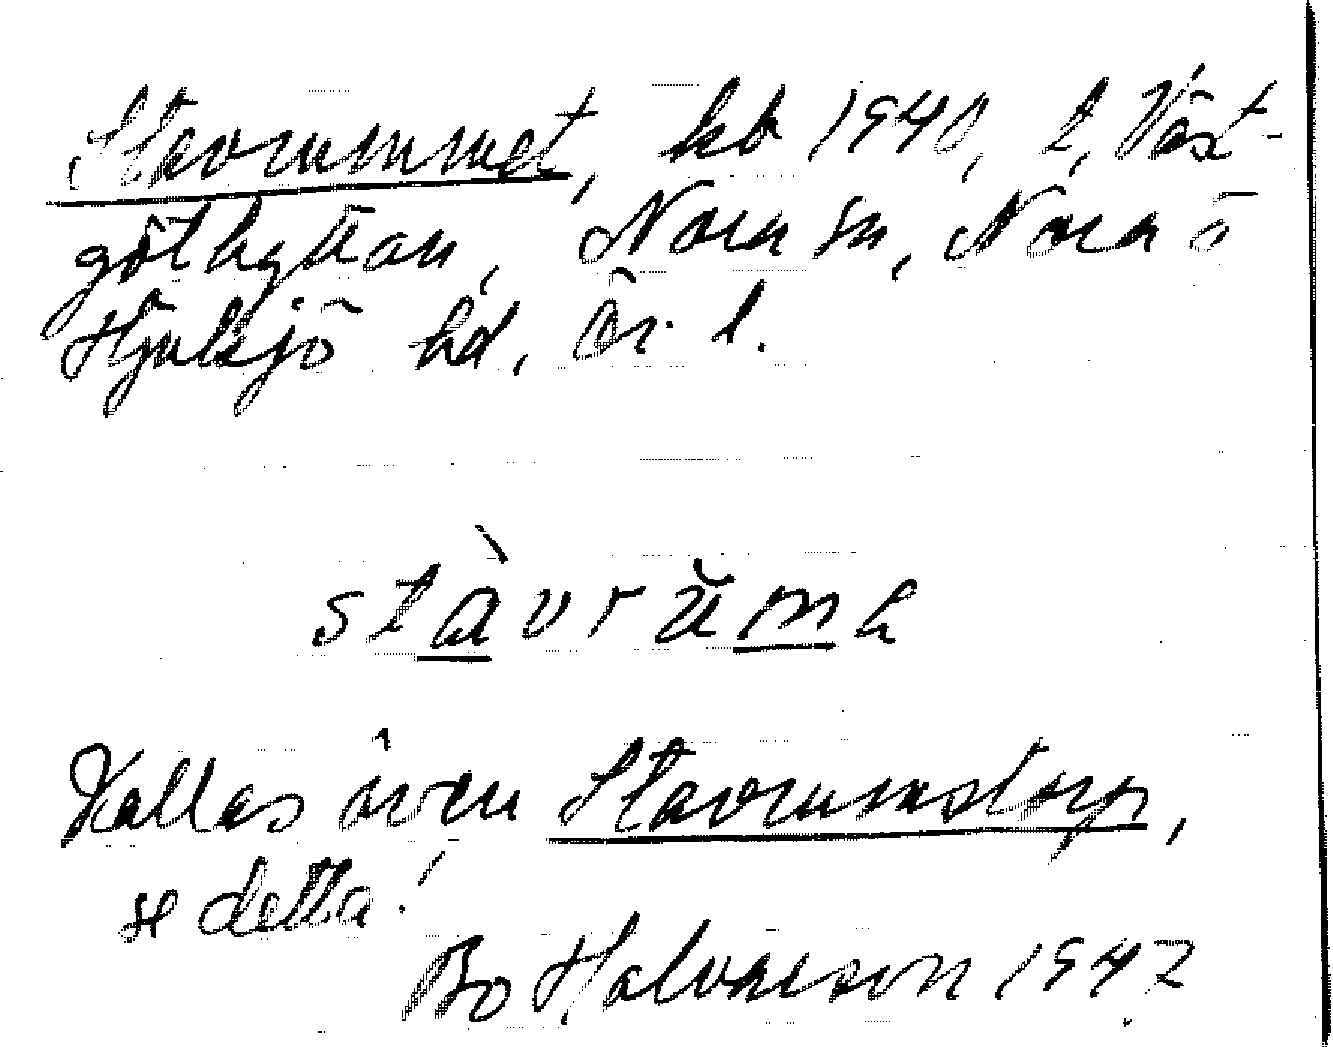 Stavrummet, kb 1940, l, Väst-
götbyttan, Nora sn, Nora o
Hjulsjö hd, Ör. l.
stàvrŭma
Kallas även Stavrumstorp,
se detta!
Bo Halvarson 1947